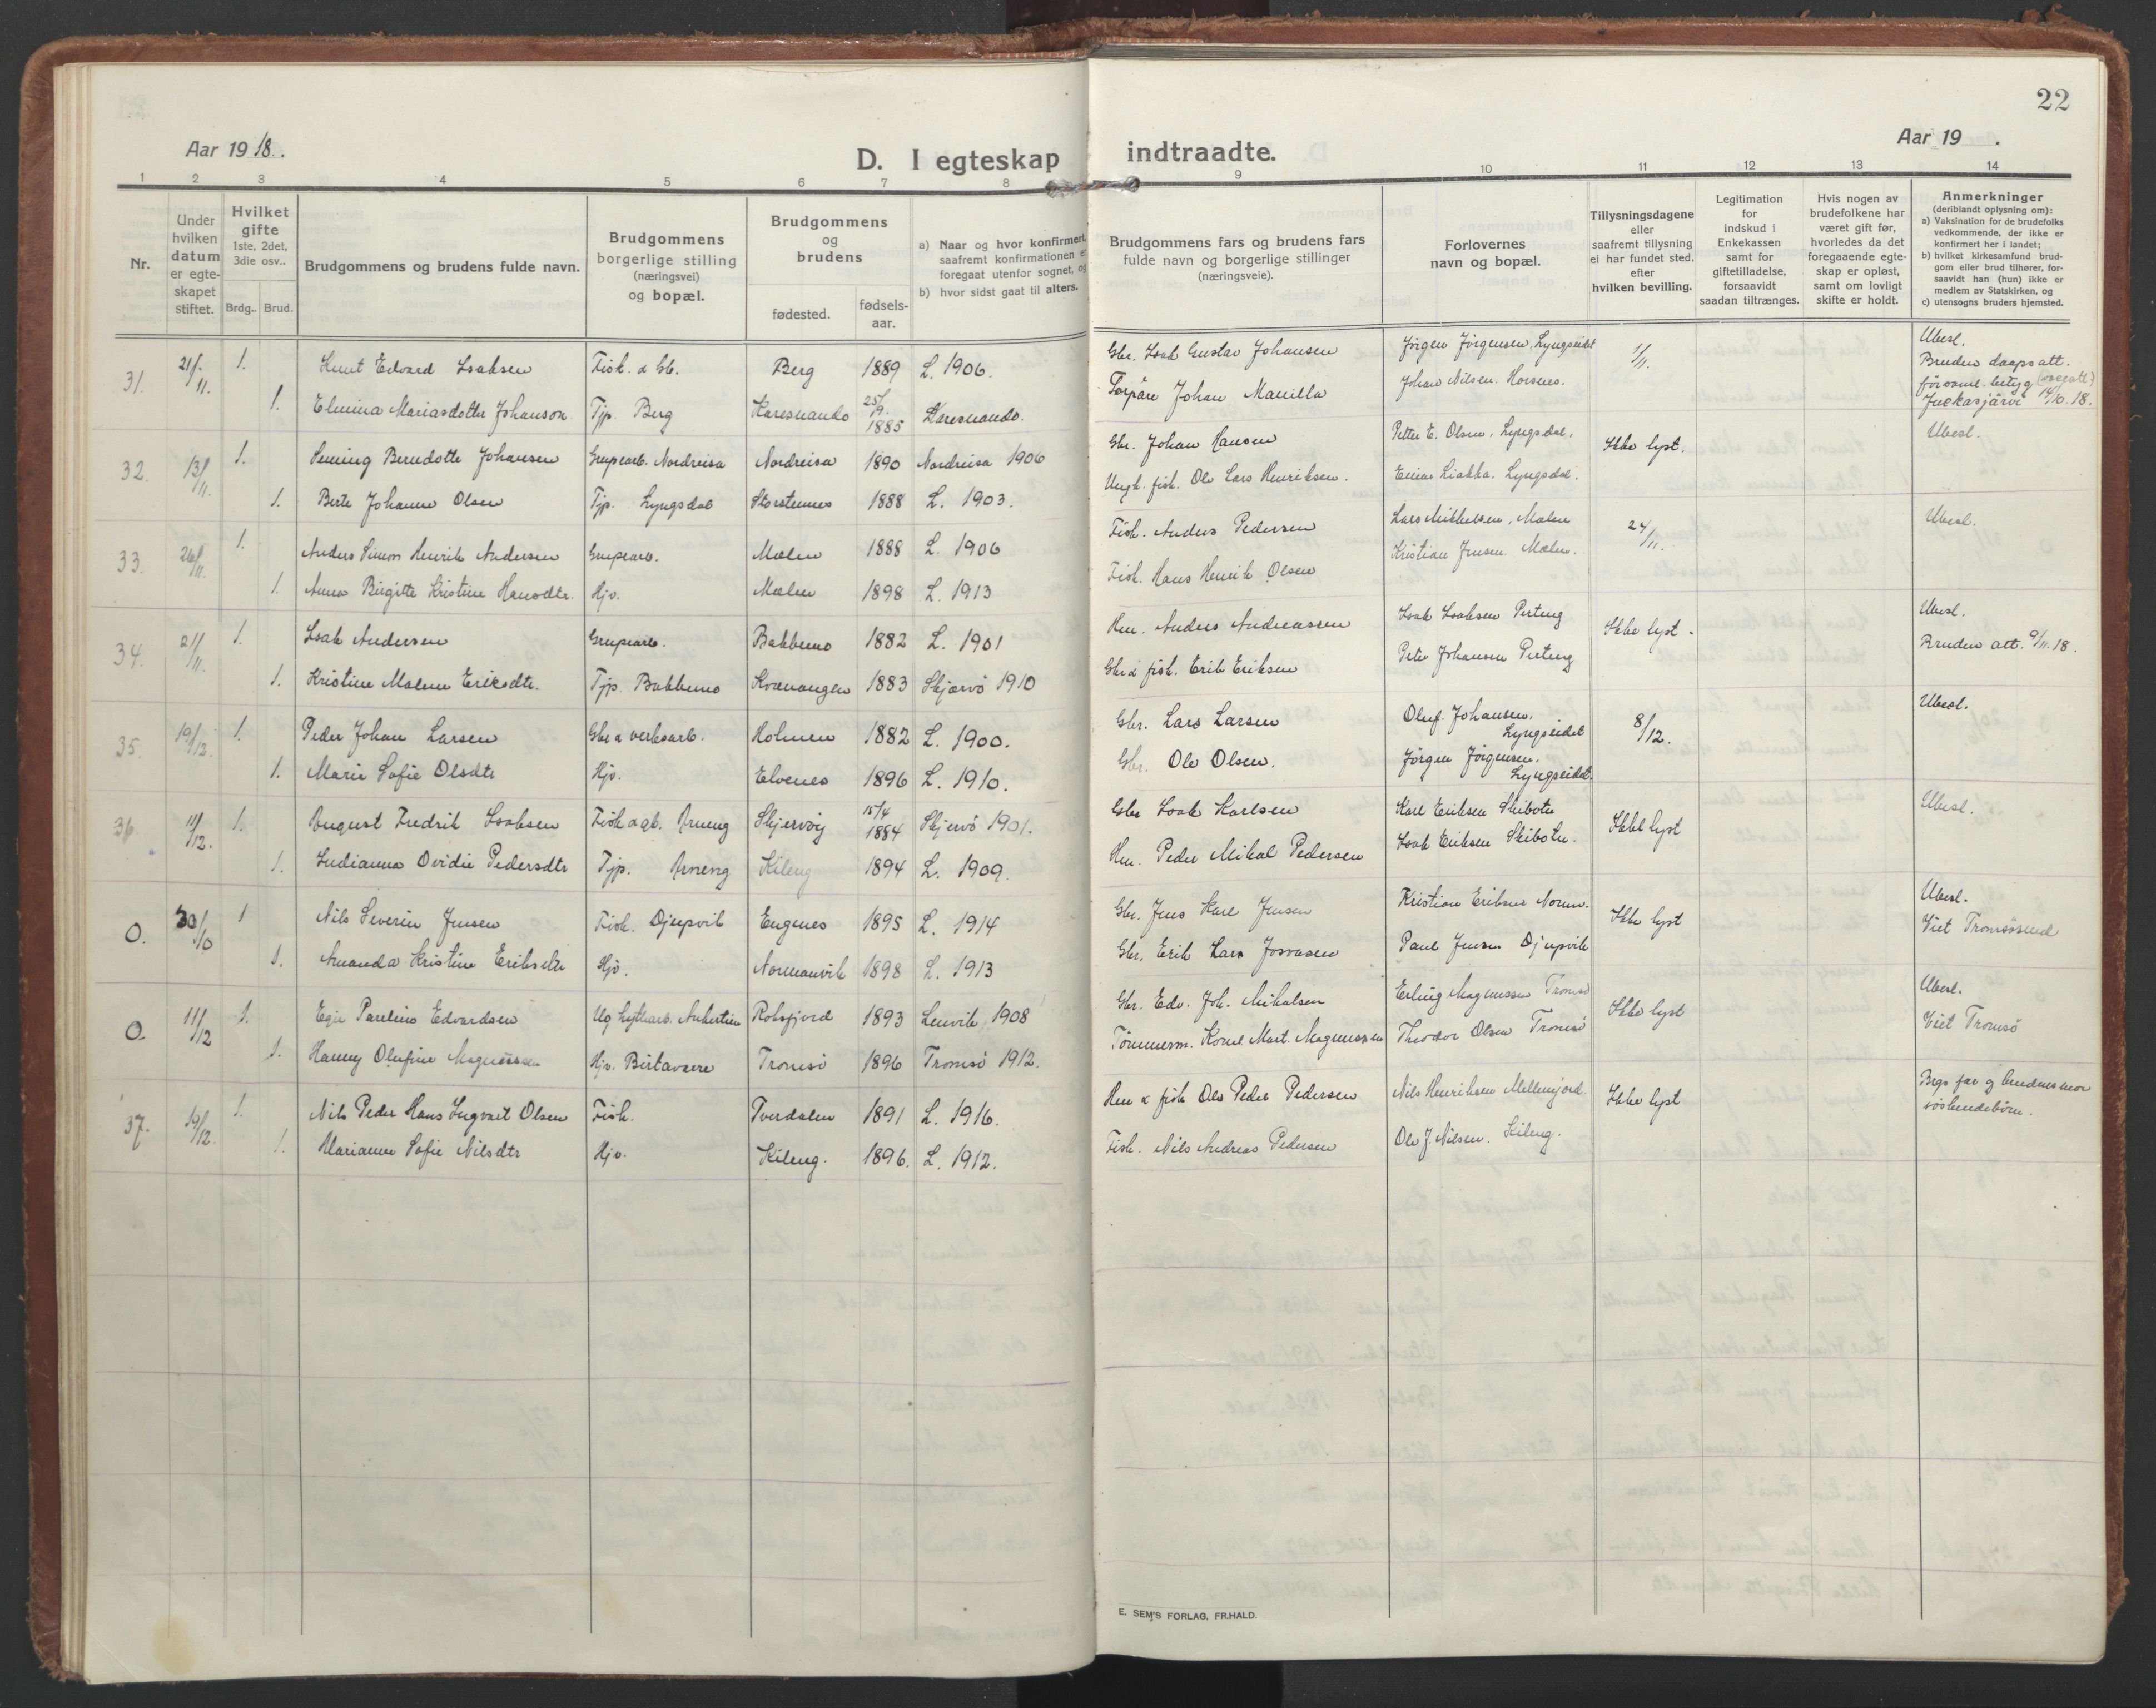 22
Aar 1918.
D. I egteskap indtraadte.
Aar 19 .
1 2 3 4 5 6 7 8 9 10 11 12 13 14
Nr.
Under hvilken datum er egte-skapet stiftet.
Hvilket gifte 1ste, 2det, 3die osv..
Brdg.. Brud.
Brudgommens og brudens fulde navn.
Brudgommens borgerlige stilling (næringsvei) og bopæl.
Brudgommens og brudens
fødested.
fødsels-aar.
a) Naar og hvor konfirmert saafremt konfirmationen er foregaat utenfor sognet, og
b) hvor sidst gaat til alters.
Brudgommens fars og brudens fars fulde navn og borgerlige stillinger (næringsveie).
Forlovernes navn og bopæl.
Tillysningsdagene eller saafremt tillysning ei har fundet sted, efter hvilken bevilling.
Legitimation for indskud i Enkekassen samt for giftetilladelse, forsaavidt saadan tiltrænges.
Hvis nogen av brudefolkene har været gift før, hvorledes da det foregaaende egte-skap er opløst, samt om lovligt skifte er holdt.
Anmerkninger
(deriblandt oplysning om):
a) Vaksination for de brudefolks vedkommende, der ikke er konfirmert her i landet;
b) hvilket kirkesamfund brud-gom eller brud tilhører, for-saavidt han (hun) ikke er medlem av Statskirken, og
c) utensogns bruders hjemsted.
31. 21/11. 1. Knut Edvard Isaksen Fisk. & gb. Berg 1889 L. 1906. Gbr. Isak Gustav Johansen Jörgen Jörgensen, Lyngseidet 1/11. Ubesl. Bruden daapsatt.
1. Elmina Mariasdotter Johanson Tjp. Berg Karesuando 25/9. 1885 Karesuando. Torpare Johan Manilla Johan Nilsen. Horsnes. församl. betyg Juckasjärvi 14/10.18.
32. 13/11. 1. Bernedotte Johansen Grupearb. Nordreisa Nordreisa 1890 Nordreisa 1906 Gbr. Johan Hansen Petter E. Olsen, Lyngsdal. Ikke lyst. Ubesl.
1. Berte Johanne Olsen Tjp. Lyngsdal Storstennes 1888 L. 1903. Ungk. fisk. Ole Lars Henriksen. Einar Liakka, Lyngsdal.
33. 26/11. 1. Anders Simon Henrik Andersen Grupearb. Mælen 1888 L. 1906 Fisk. Anders Pedersen Lars Mikkelsen, Mælen 24/11. Ubesl.
1. Anna Birgitte Kristine Hansdtr. Hjv. Mælen 1898 L. 1913 Fisk. Hans Henrik Olsen Kristian Jensen Mælen.
34. 21/11. 1. Isak Andersen Grupearb. Bakkemo 1882 L. 1901 Hm. Anders Andreassen Isak Isaksen Perteng Ikke lyst. Ubesl.
1. Kristine Malene Eriksdtr. Tjp. Bakkemo Kvænangen 1883 Skjærvö 1910 Gbr & fisk. Erik Eriksen Peter Johansen Perteng Bruden att. 9/11.18.
35. 19/12. 1. Peder Johan Larsen Gbr & verksarb. Holmen 1882 L. 1900. Gbr. Lars Larsen Oluf Johansen, Lyngseidet 8/12. Ubesl.
1. Marie Sofie Olsdtr Hjv. Elvenes 1896 L. 1910. Gbr. Ole Olsen. Jörgen Jörgensen, Lyngseidet.
36. 11/12. 1. August Fredrik Isaksen Fisk & gb. Arneng Skjervöy 15/4 1884 Skjervö 1901. Gbr Isak Karlsen Karl Eriksen Skibotn Ikke lyst Ubesl.
1. Indianna Ovidie Pedersdtr Tjp. Arneng Kileng 1894 L. 1909. Hm. Peder Mikal Pedersen Isak Eriksen Skibotn.
O. 30/10 1 Nils Severin Jensen Fisk. Djupvik Engenes 1895 L. 1914 Gbr. Jens Karl Jensen Kristian Eriksen Norm. Ikke lyst Ubesl.
1. Amanda Kristine Eriksdtr Hjv. Normanvik 1898 L. 1913 Gbr. Erik Lars Josvasen Paul Jensen Djupvik Viet Tromsösund
O. 11/12 1. Paulius Edvardsen Rossfjord 1893 Lenvik 1908 Gbr. Edv. Joh. Mikalsen Erling Magnussen Tromsö Ikke lyst Ubesl.
1. Hanny Olufine Magnussen Hjv. Birtavarre Tromsö 1896 Tromsö 1912. Tömmerm. Konel Mart. Magnussen Theodor Olsen Tromsö Viet Tromsö
37. 19/12. 1. Nils Peder Hans Ingvart Olsen Fisk. Tverdalen 1891 L. 1916. Hm & fisk Ole Peder Pedersen Nils Henriksen Mellemjord. Ikke lyst Brgs far og brudens mor söskendebörn.
1. Marianne Sofie Nilsdtr Hjv. Kileng. 1896. L. 1912. Fisk. Nils Andreas Pedersen Ole J. Nilsen. Kileng.
E. SEM'S FORLAG, FR.HALD.